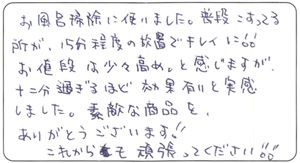 お風呂掃除に使いました。普段こすってる
所が、15分程度の放置でキレイに!!
お値段は少々高め。と感じますが、
十二分過ぎるほど効果有りと実感
しました。素敵な商品を、
ありがとうございます!
これからも頑張ってください!!